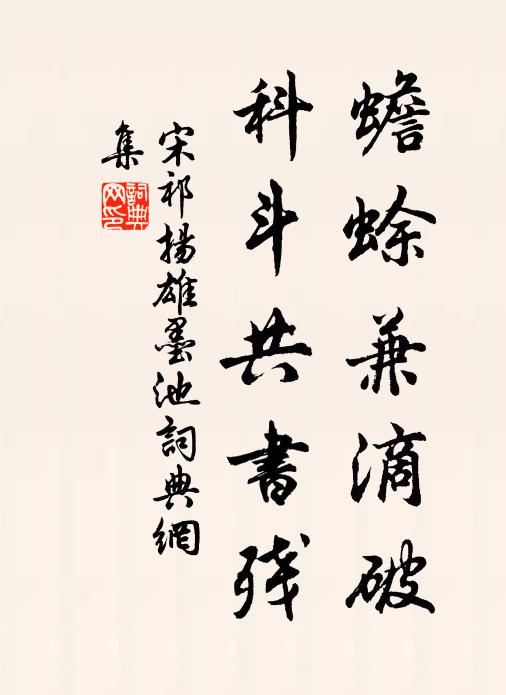 蟾蜍兼滴破
科斗共書殘
宋祁揚雄墨池詞典網
集
詞典網印